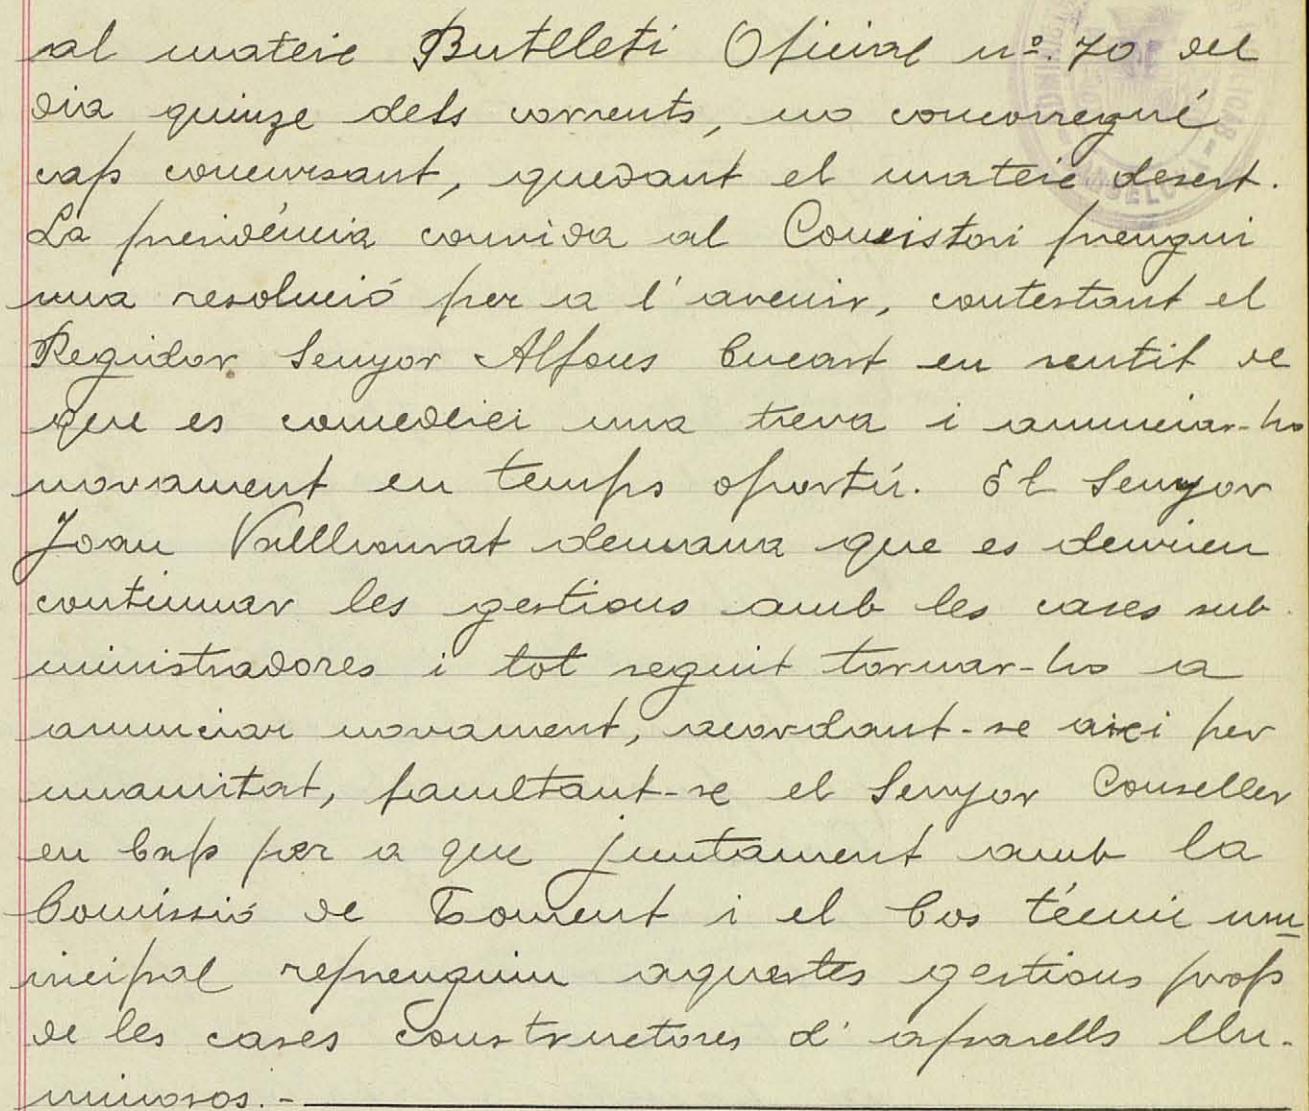 al mateix Butlletí Oficial nº. 70 del
dia quinze dels corrents, no concorregué
cap concursant, quedant el mateix desert.
La presidéncia convida al Consistori prengui
una resolució per a l'avenir, contestant el
Regidor Senyor Alfons en sentit de
que es concedeixi una treva i anunciar-ho
novament en temps oportú. El Senyor
Joan Vallhonrat demana que es devien
continuar les gestions amb les cases sub-
ministradores i tot seguit tornar-ho a
anunciar novament, acordant-se aixi per
unanitat, facultant-se el Senyor Conseller
en Cap per a que juntament amb la
Comissió de Foment i el Cos técnic mu
nicipal reprenguin aquestes gestions prop
de les cases constructores d'aparells llu-
minosos.-